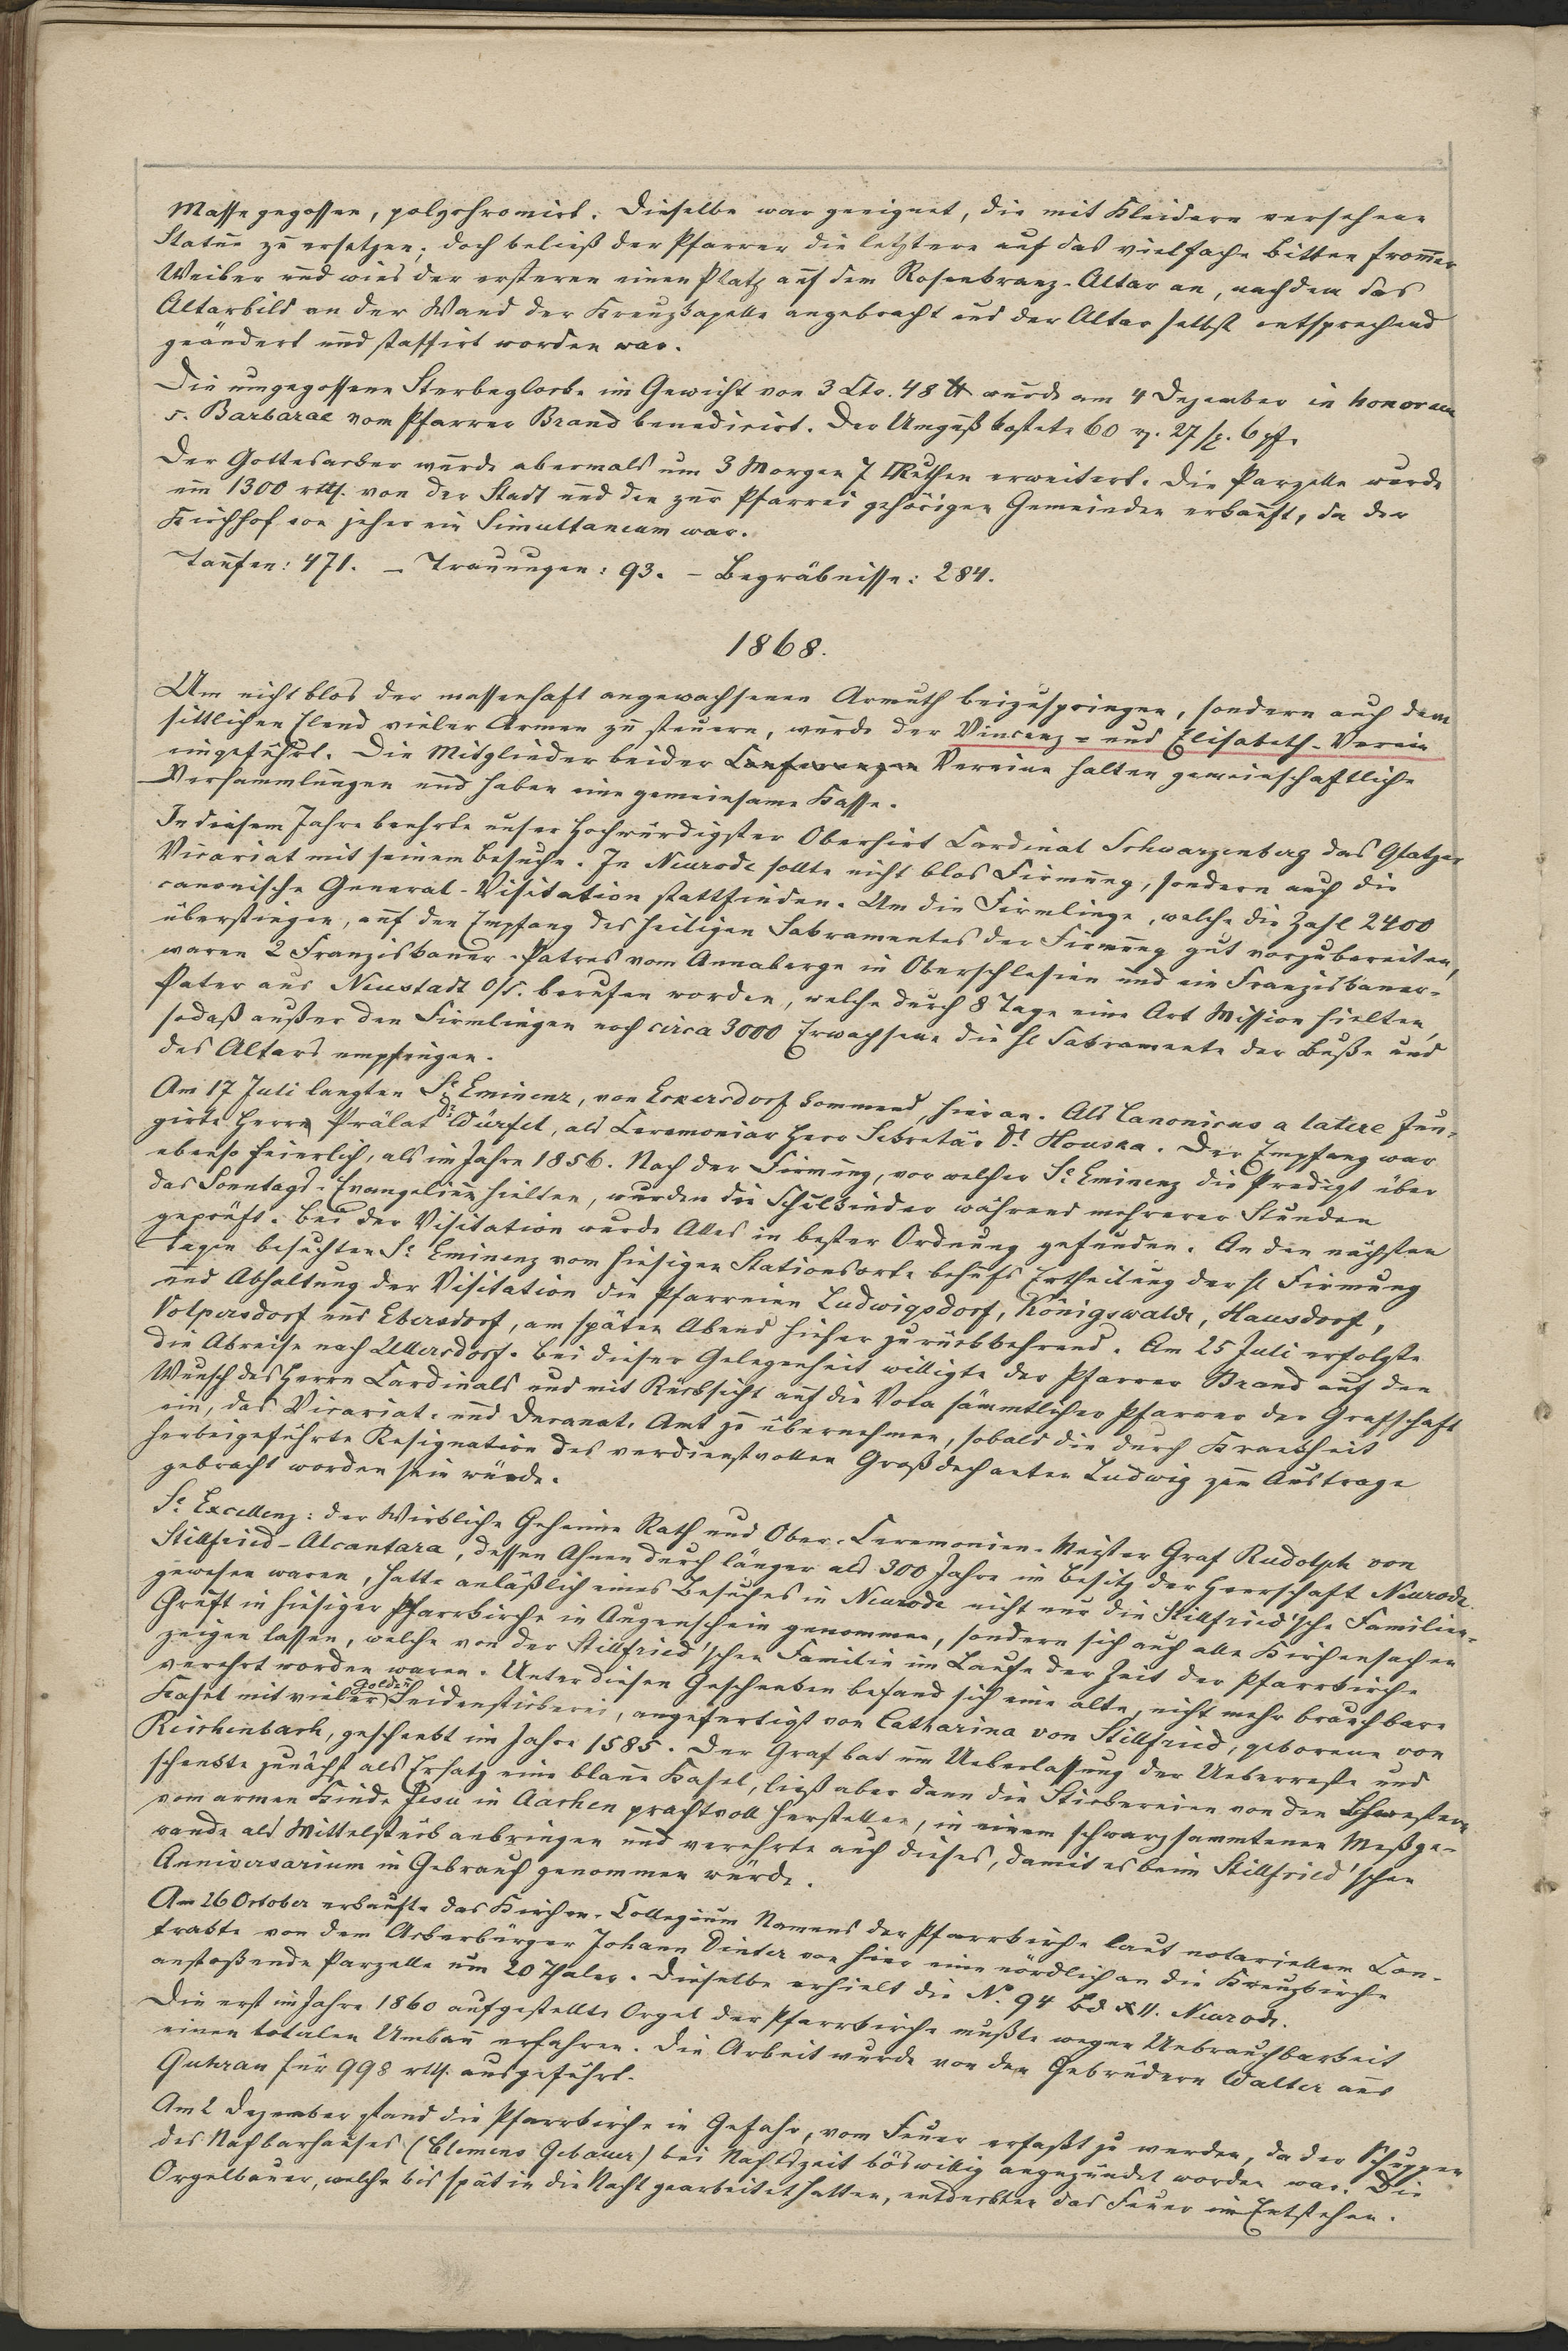 Masse gegossen, polychromirt. Dieselbe war geeignet, die mit Kleidern versehene
Statue zu ersetzen; doch beließ der Pfarrer die letztere auf das vielfache Bitten from̄er
Weiber und wies der ersteren einen Platz auf dem Rosenkranz-Altar an, nachdem das
Altarbild an der Wand der Kreuzkapelle angebracht und der Altar selbst entsprechend
geändert und staffirt worden war.
Die umgegossene Sterbeglocke im Gewicht von 3 Ctr. 48 ℔ wurde am 4 Dezember in honorem
s. Barbarae vom Pfarrer Brand benedicirt. Der Umguß kostete 60 r. 27 sg. 6 pf.
Der Gottesacker wurde abermals um 3 Morgen 7 □Ruthen erweitert. Die Parzelle wurde
um 1300 rtl. von der Stadt und den zur Pfarrei gehörigen Gemeinden erkauft, da der
Kirchhof von jeher ein Simultaneum war.
Taufen: 471. – Trauungen: 93. – Begräbnisse: 284.
1868.
Um nicht blos der massenhaft angewachsenen Armuth beizuspringen, sondern auch dem
sittlichen Elend vieler Armen zu steuern, wurde der Vincenz- und Elisabeth-Verein
eingeführt. Die Mitglieder beider Conferenzen Vereine halten gemeinschaftliche
Versammlungen und haben eine gemeinsame Kasse.
In diesem Jahre beehrte unser Hochwürdigster Oberhirt Cardinal Schwarzenberg das Glatzer
Vicariat mit seinem Besuche. In Neurode sollte nicht blos Firmung, sondern auch die
canonische General-Visitation stattfinden. Um die Firmlinge, welche die Zahl 2400
überstiegen, auf den Empfang des heiligen Sakramentes der Firmung gut vorzubereiten,
waren 2 Franziskaner-Patres vom Annaberge in Oberschlesien und ein Franziskaner-
Pater aus Neustadt O/S. berufen worden, welche durch 8 Tage eine Art Mission hielten,
sodaß außer den Firmlingen noch circa 3000 Erwachsene die hl Sakramente der Buße und
des Altars empfingen.
Am 17 Juli langten Se Eminenz, von Eckersdorf kommend, hier an. Als Canonicus a latere fun-
girte Herr Prälat Dr. Würfel, als Ceremoniar Herr Sekretär Dr. Houska. Der Empfang war
ebenso feierlich, als im Jahre 1856. Nach der Firmung, vor welcher Se Eminenz die Predigt über
das Sonntags-Evangelium hielten, wurden die Schulkinder während mehrerer Stunden
geprüft. Bei der Visitation wurde Alles in bester Ordnung gefunden. An den nächsten
Tagen besuchten Se Eminenz vom hiesigen Stationsorte behufs Ertheilung der hl Firmung
und Abhaltung der Visitation die Pfarreien Ludwigsdorf, Königswalde, Hausdorf,
Volpersdorf und Ebersdorf, am späten Abend hieher zurückkehrend. Am 25 Juli erfolgte
die Abreise nach Ullersdorf. Bei dieser Gelegenheit willigte der Pfarrer Brand auf den
Wunsch des Herrn Cardinals und mit Rücksicht auf die Vota sämmtlicher Pfarrer der Grafschaft
ein, das Vicariat- und Decanat-Amt zu übernehmen, sobald die durch Krankheit
herbeigeführte Resignation des verdienstvollen Großdechanten Ludwig zum Austrage
gebracht worden sein würde.
Se Excellenz: der Wirkliche Geheime Rath und Ober-Ceremonien-Meister Graf Rudolph von
Stillfried-Alcantara, dessen Ahnen durch länger als 300 Jahre im Besitz der Herrschaft Neurode
gewesen waren, hatte anläßlich eines Besuches in Neurode nicht nur die Stillfried'sche Familien-
Gruft in hiesiger Pfarrkirche in Augenschein genommen, sondern sich auch alle Kirchensachen
zeigen lassen, welche von der Stillfried'schen Familie im Laufe der Zeit der Pfarrkirche
verehrt worden waren. Unter diesen Geschenken befand sich eine alte, nicht mehr brauchbare
Kasel mit vieler Gold u Seidenstickerei, angefertigt von Catharina von Stillfried, geborene von
Reichenbach, geschenkt im Jahre 1585. Der Graf bat um Ueberlassung der Ueberreste und
schenkte zunächst als Ersatz eine blaue Kasel, ließ aber dann die Stickereien von den Schwestern
vom armen Kinde Jesu in Aachen prachtvoll herstellen, in einem schwarzsammtenen Meßge-
wande als Mittelstück anbringen und verehrte auch dieses, damit es beim Stillfried'schen
Anniversarium in Gebrauch genommen würde.
Am 26 October erkaufte das Kirchen-Collegium Namens der Pfarrkirche laut notariellem Con-
trakte von dem Ackerbürger Johann Dinter von hier eine nördlich an die Kreuzkirche
anstoßende Parzelle um 20 Thaler. Dieselbe erhielt die No. 94 Bd XII. Neurode.
Die erst im Jahre 1860 aufgestellte Orgel der Pfarrkirche mußte wegen Unbrauchbarkeit
einen totalen Umbau erfahren. Die Arbeit wurde von den Gebrüdern Walter aus
Guhrau für 998 rtl. ausgeführt.
Am 2 Dezember stand die Pfarrkirche in Gefahr, vom Feuer erfaßt zu werden, da der Schuppen
des Nachbarhauses (Clemens Gebauer) bei Nachtszeit böswillig angezündet worden war. Die
Orgelbauer, welche bis spät in die Nacht gearbeitet hatten, entdeckten das Feuer im Entstehen.